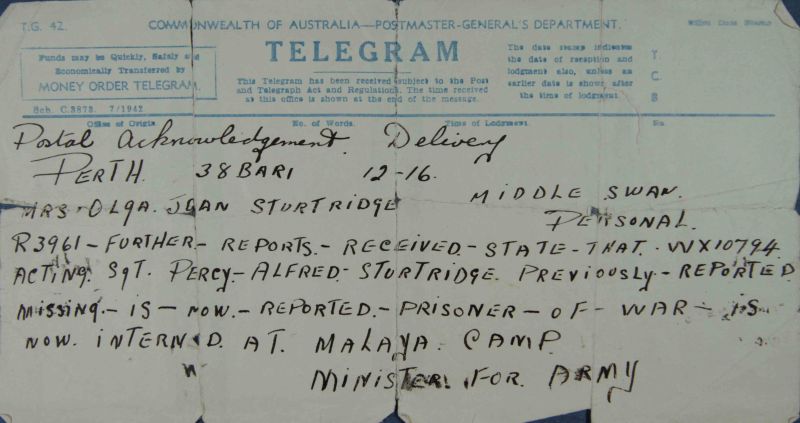 T.G. 42.
COMMONWEALTH OF AUSTRALIA—POSTMASTER-GENERAL'S DEPARTMENT.
Office Date Stamp
Funds may be Quickly, Safely and
Economically Transferred by
MONEY ORDER TELEGRAM.
Sch. C.3873. 7/1942
TELEGRAM
This Telegram has been received subject to the Post
and Telegraph Act and Regulations. The time received
at this office is shown at the end of the message.
The date stamp indicates
the date of reception and
lodgment also, unless an
earlier date is shown after
the time of lodgment.
T.
C.
B
Office of Origin. No. of Words. Time of Lodgment. No.
Postal Acknowledgement. Delivery
PERTH. 38 BARI 12-16.
MRS. OLGA. JEAN STURTRIDGE MIDDLE SWAN.
PERSONAL.
R3961 - FURTHER - REPORTS. - RECEIVED. - STATE - THAT. - WX10794.
ACTING. SgT. PERCY - ALFRED - STURTRIDGE. PREVIOUSLY - REPORTED
MISSING. - IS - NOW. - REPORTED. - PRISONER - OF - WAR - IS
NOW. INTERN D. AT. MALAYA. CAMP.
MINISTER. FOR. ARMY